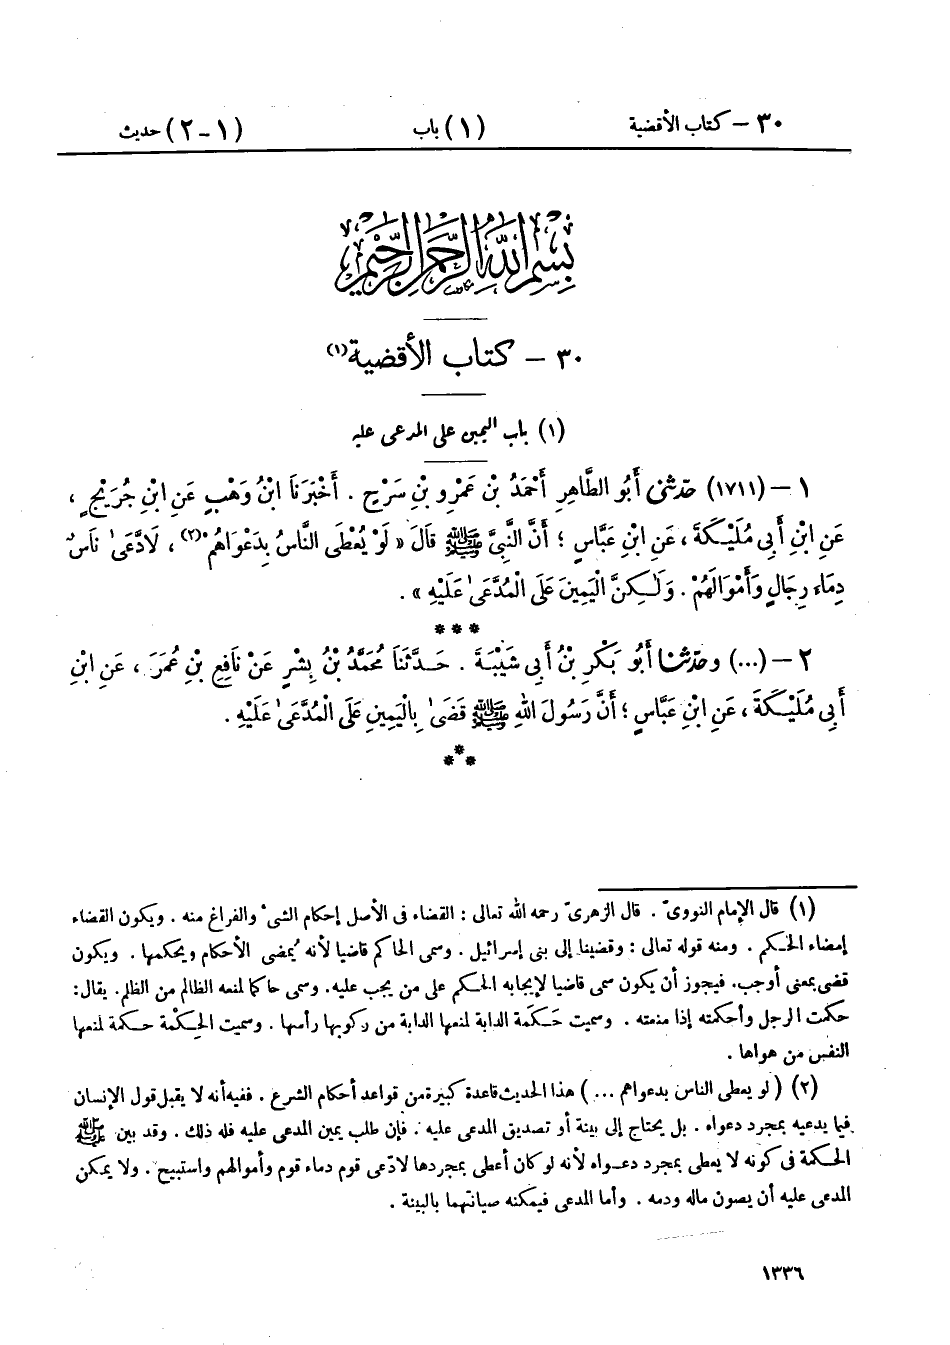 ٣٠ – كتاب الأقضية (١) باب (١-٢) حديث
بِسْمِ اللهِ الرَّحْمٰنِ الرَّحِيمِ
٣٠ – كتاب الأقضية(١)
(١) باب اليمين على المدعى عليه
١ – (١٧١١) حدثنى أَبُو الطَّاهِرِ أَحْمَدُ بْنُ عَمْرِو بْنِ سَرْحٍ . أَخْبَرَنَا ابْنُ وَهْبٍ عَنِ ابْنِ جُرَيْجٍ ،
عَنِ ابْنِ أَبِى مُلَيْكَةَ ، عَنِ ابْنِ عَبَّاسٍ ؛ أَنَّ النَّبِىَّ ﷺ قَالَ « لَوْ يُعْطَى النَّاسُ بِدَعْوَاهُمْ(٢) ، لَادَّعَىٰ نَاسٌ
دِمَاءَ رِجَالٍ وَأَمْوَالَهُمْ . وَلَـٰكِنَّ الْيَمِينَ عَلَى الْمُدَّعَىٰ عَلَيْهِ » .
***
٢ – (...) وحدثنا أَبُو بَكْرِ بْنُ أَبِى شَيْبَةَ . حَدَّثَنَا مُحَمَّدُ بْنُ بِشْرٍ عَنْ نَافِعِ بْنِ عُمَرَ ، عَنِ ابْنِ
أَبِى مُلَيْكَةَ ، عَنِ ابْنِ عَبَّاسٍ ؛ أَنَّ رَسُولَ اللهِ ﷺ قَضَىٰ بِالْيَمِينِ عَلَى الْمُدَّعَىٰ عَلَيْهِ .
***
(١) قال الإمام النووىّ . قال الزهرىّ رحمه الله تعالى : القضاء فى الأصل إحكام الشىء والفراغ منه . ويكون القضاء
إمضاء الحكم . ومنه قوله تعالى : وقضينا إلى بنى إسرائيل . وسمى الحاكم قاضيا لأنه يُمضى الأحكام ويحكمها . ويكون
قضى بمعنى أوجب. فيجوز أن يكون سمى قاضيا لإيجابه الحكم على من يجب عليه. وسمى حاكما لمنعه الظالم من الظلم. يقال:
حكمت الرجل وأحكمته إذا منعته . وسميت حَكَمة الدابة لمنعها الدابة من ركوبها رأسها . وسميت الحِكْمة حكمة لمنعها
النفس من هواها .
(٢) ( لو يعطى الناس بدعواهم ... ) هذا الحديث قاعدة كبيرة من قواعد أحكام الشرع . ففيه أنه لا يقبل قول الإنسان
فيما يدعيه بمجرد دعواه . بل يحتاج إلى بينة أو تصديق المدعى عليه . فإن طلب يمين المدعى عليه فله ذلك . وقد بين ﷺ
الحكمة فى كونه لا يعطى بمجرد دعواه لأنه لو كان أعطى بمجردها لادّعى قوم دماء قوم وأموالهم واستبيح . ولا يمكن
المدعى عليه أن يصون ماله ودمه . وأما المدعى فيمكنه صيانتهما بالبينة .
١٣٣٦